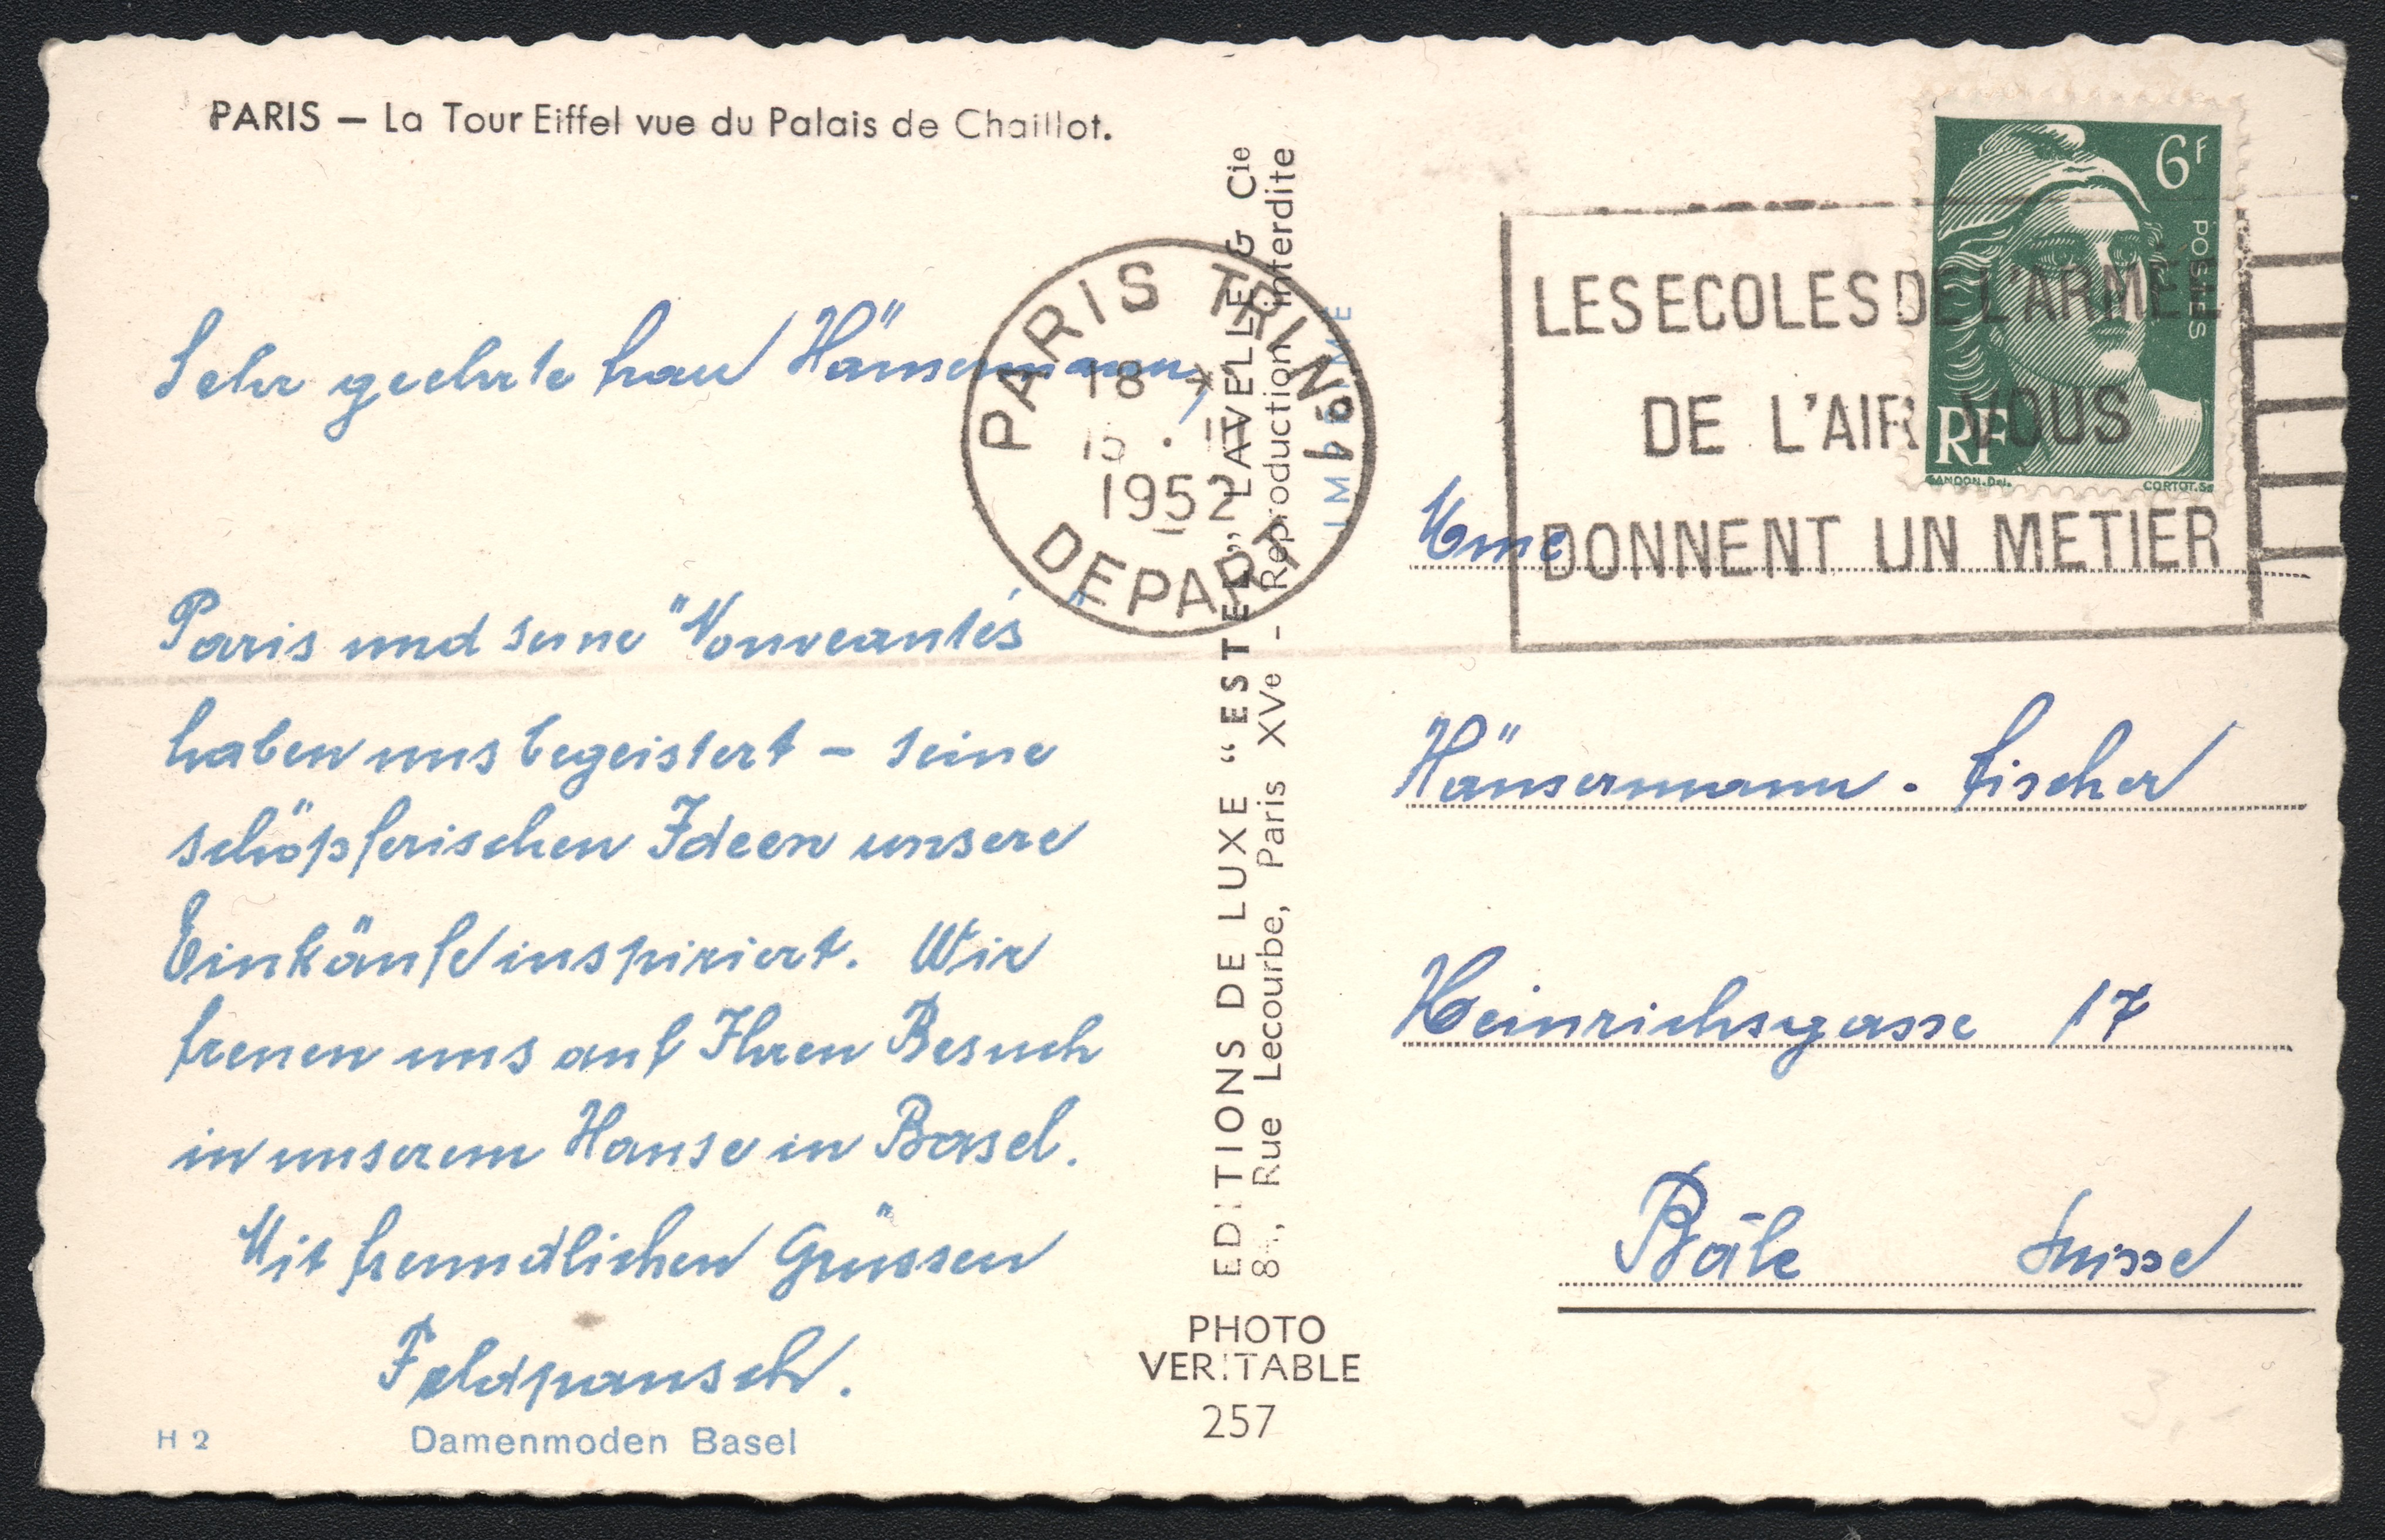 PARIS — La Tour Eiffel vue du Palais de Chaillot.
Sehr geehrte Frau Häusermann,
Paris und seine "Nouveautés"
haben uns begeistert – seine
schöpferischen Ideen unsere
Einkäufe inspiriert. Wir
freuen uns auf Ihren Besuch
in unserem Hause in Basel.
Mit freundlichen Grüssen
Feldpausch.
H 2
Damenmoden Basel
EDITIONS DE LUXE “ESTEL” LAVELLE & Cie
Rue Lecourbe, Paris XVe - Reproduction interdite
IMPRIMÉ
PHOTO
VERITABLE
257
PARIS TRI N° 1
18
1952
DEPART
LES ECOLES DE L'ARMÉE
DE L'AIR VOUS
DONNENT UN METIER
6F
POSTES
RF
GANDON.Del.
CORTOT.Sc
Mme
Häusermann - Fischer
Heinrichsgasse 17
Bâle Suisse
3,-